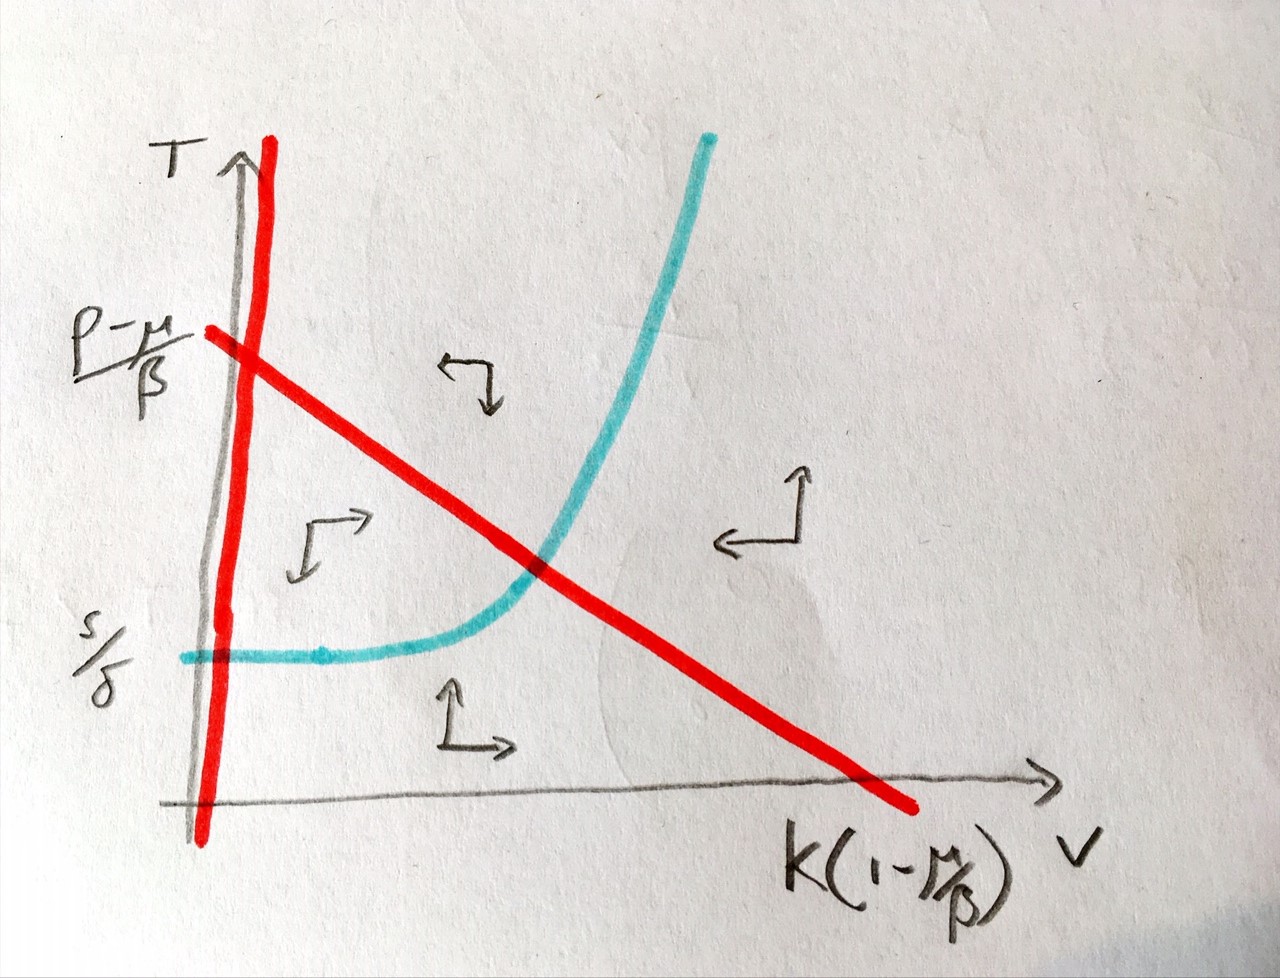 T
ρ-μ/β
s/δ
K(1-μ/β)
V